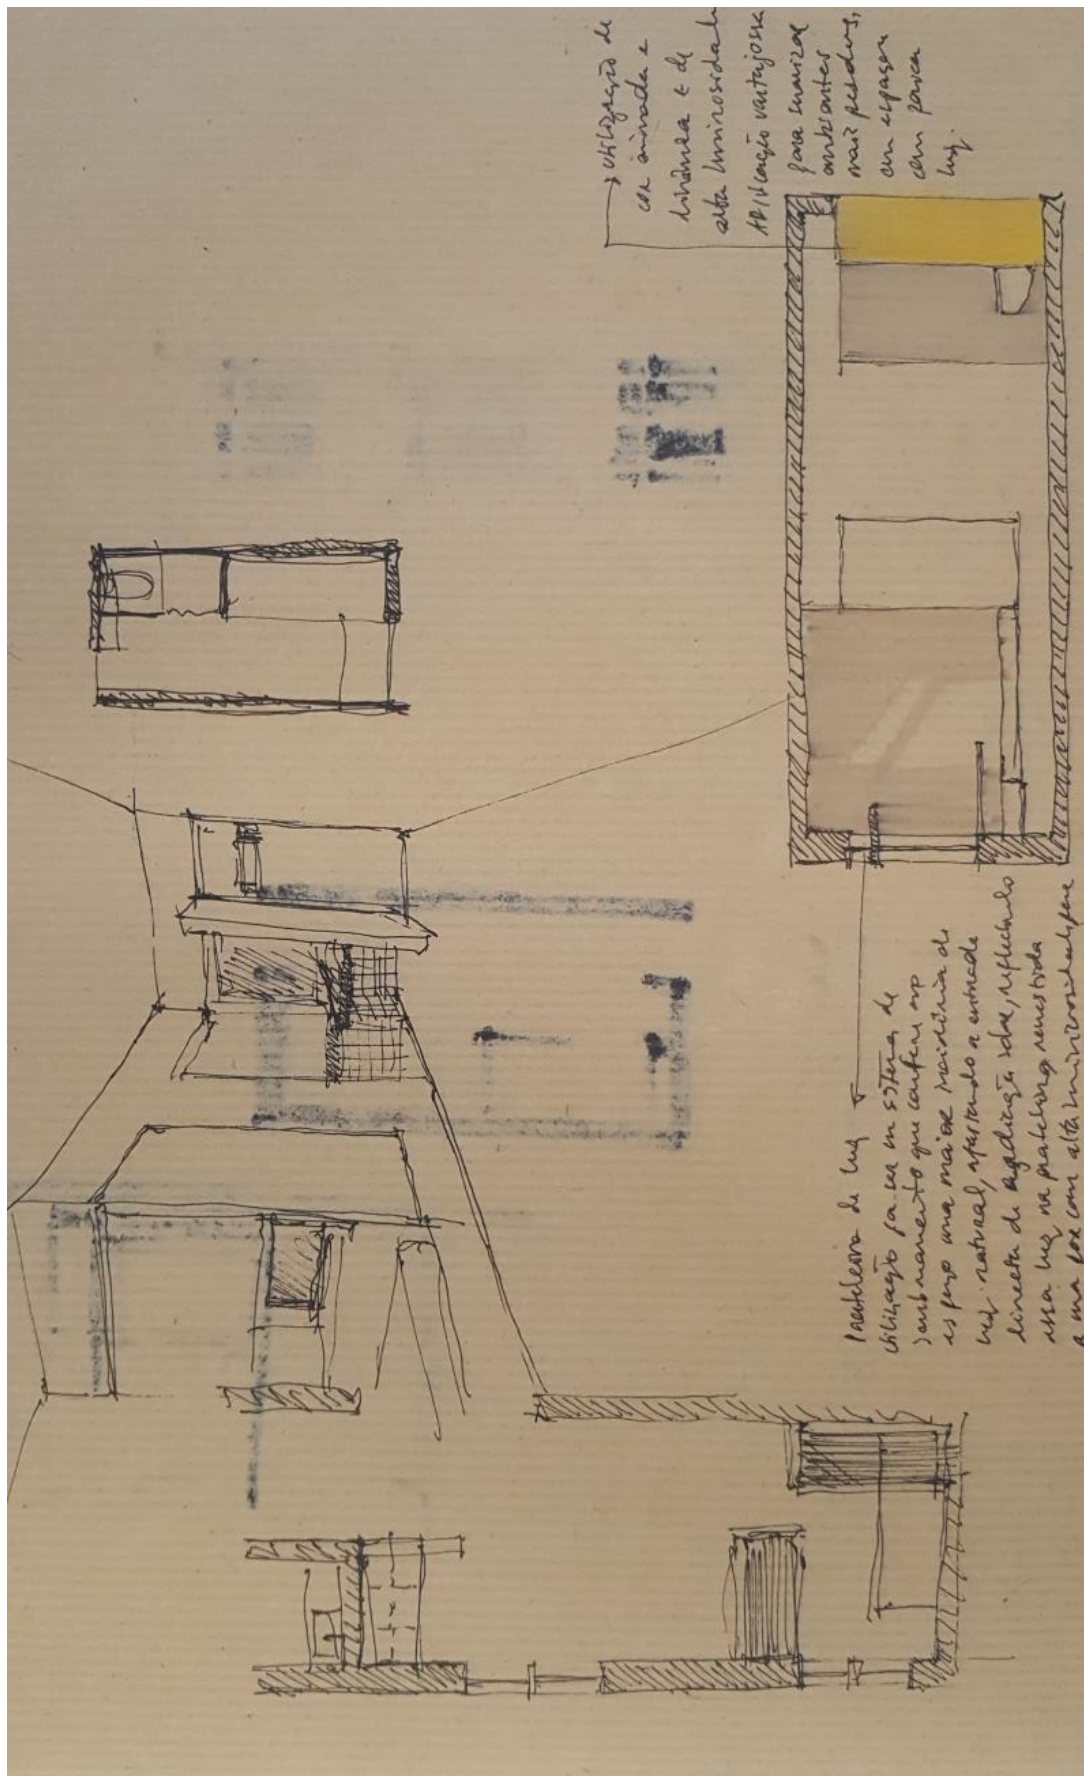 utilização de
cor animada e
dinâmica e de
alta luminosidade
Aplicação vantajosa
para suavizar
ambientes
mais
em espaços
com pouca
luz.
Prateleira de luz
utilização para um sistema de
sombreamento que confere ao
espaço uma maior incidência de
luz natural, afastando a entrada
directa de radiação solar, reflectindo
essa luz na prateleira, revestida
a uma cor com alta luminosidade, para